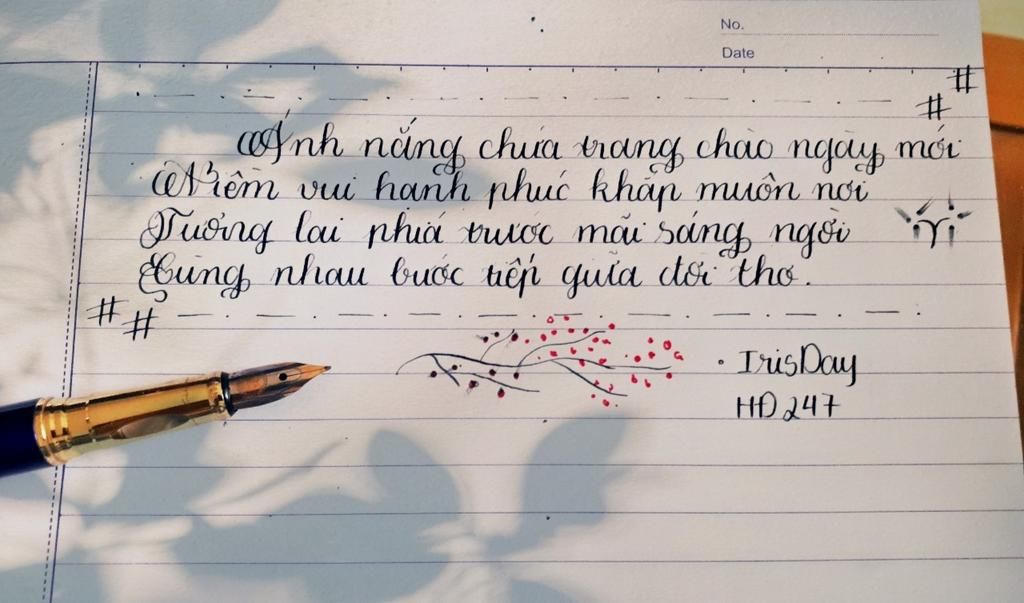 No.
Date
Ánh nắng chứa trang chào ngày mới
Niềm vui hạnh phúc khắp muôn nơi
Tương lai phía trước mãi sáng ngời
Cùng nhau bước tiếp giữa đời thơ.
IrisDay
HĐ 247